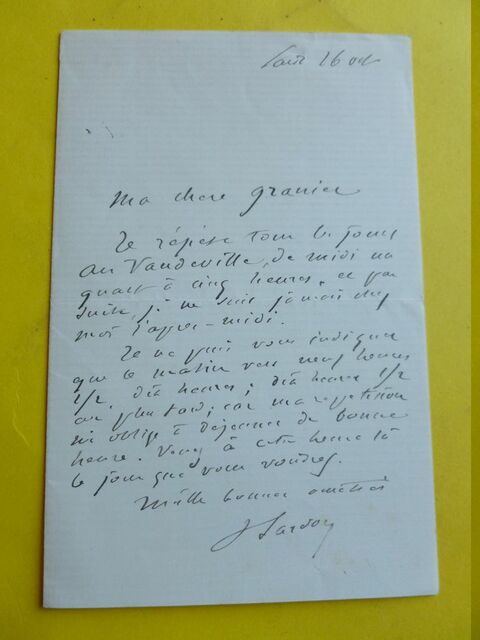 Paris 26 oct
Ma chère Granier
Je répète tous les jours
au Vaudeville, de midi un
quart à cinq heures, et par
suite, je ne suis jamais chez
moi l'après-midi.
Je ne puis vous indiquer
que le matin vers neuf heures
1/2, dix heures; dix heures 1/2
au plus tard; car ma répétition
m'oblige à déjeuner de bonne
heure. Venez à cette heure là
le jour que vous voudrez.
Mille bonnes amitiés
V Sardou